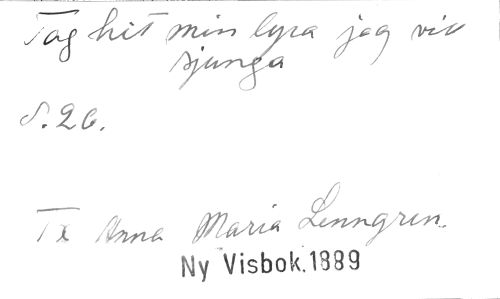 Tag hit min lyra jag vill
sjunga
S. 26.
Tx Anna Maria Lenngren.
Ny Visbok. 1889